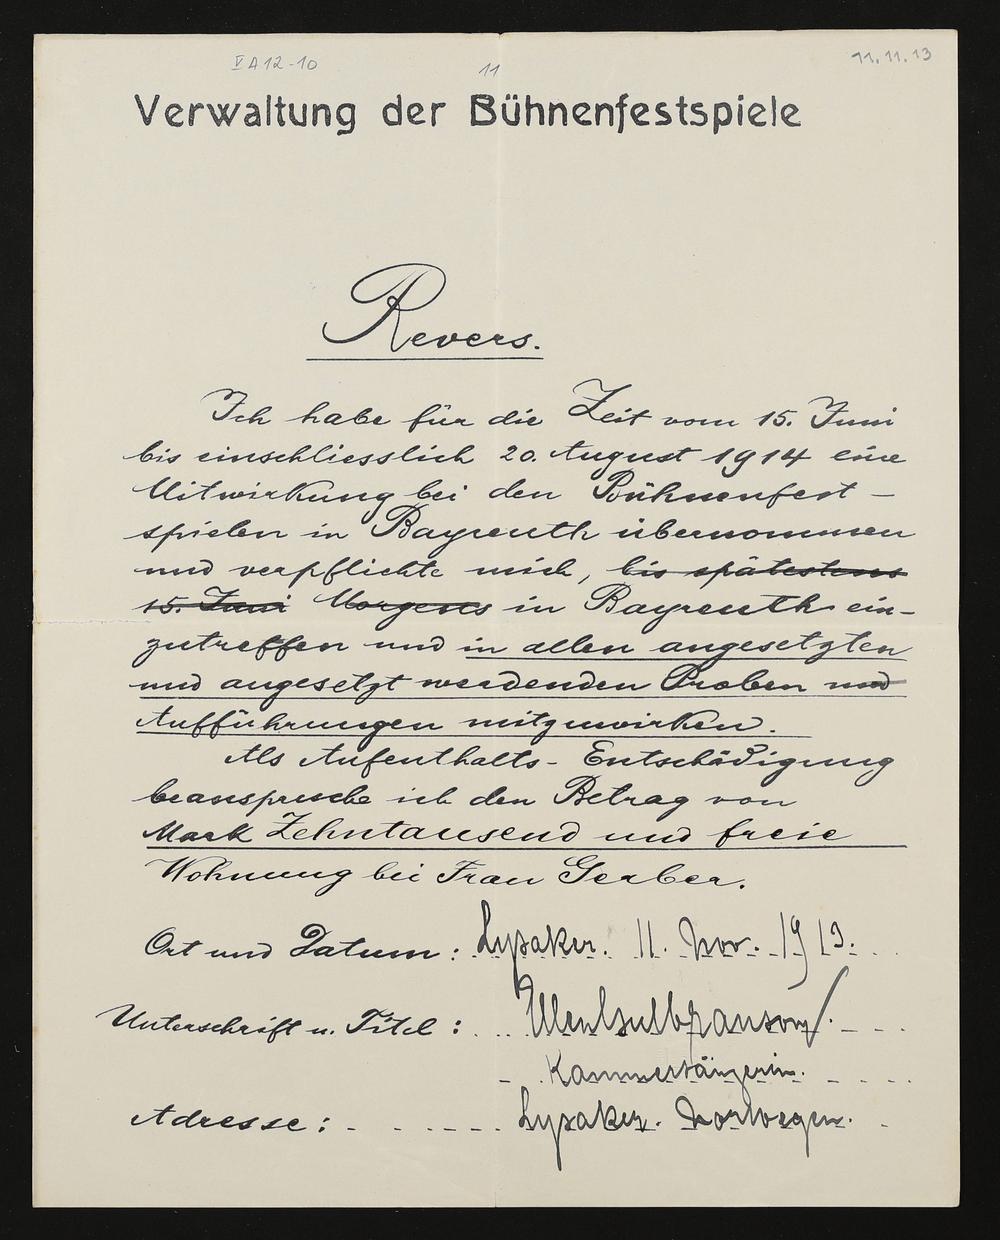 V A 12-10
11
11.11.13
Verwaltung der Bühnenfestspiele
Revers.
Ich habe für die Zeit vom 15. Juni
bis einschliesslich 20. August 1914 eine
Mitwirkung bei den Bühnenfest-
spielen in Bayreuth übernommen
und verpflichte mich, bis spätestens
15. Juni Morgens in Bayreuth ein-
zutreffen und in allen angesetzten
und angesetzt werdenden Proben und
Aufführungen mitzuwirken.
Als Aufenthalts-Entschädigung
beanspruche ich den Betrag von
Mark Zehntausend und freie
Wohnung bei Frau Gerber.
Ort und Datum: Lysaker. 11. Nov. 1913.
Unterschrift u. Titel: Ellen Gulbranson
Kammersängerin.
Adresse: Lysaker. Norwegen.